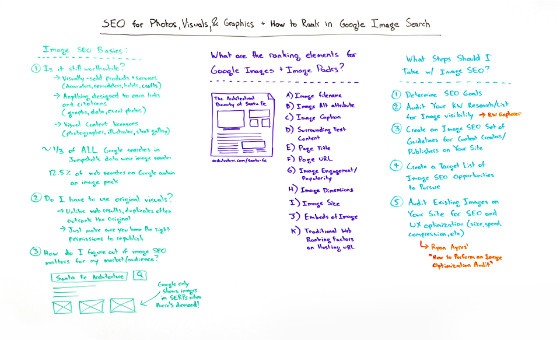 SEO for Photos, Visuals, & Graphics - How to Rank in Google Image Search
Image SEO Basics:
① Is it still worthwhile?
→ Visually-sold products + services
→ Anything designed to earn links
and citations
(graphs, data, event photos)
→ Visual Content Licensors
(photographer, illustrator, stock
~1/3 of ALL Google searches in
Jumpshot's data were image searches
12.5% of web searches on Google contain
an image pack
② Do I have to use original visuals?
→ Unlike web results, duplicates often
outrank the original
→ Just make sure you have the right
permissions to republish
③ How do I figure out if image SEO
matters for my market/audience?
Santa Fe Architecture
Google only
shows images
in SERPs when
there's demand!
What are the ranking elements for
Google Images + Image Packs?
The Architectural
Diversity of Santa Fe
A) Image filename
B) Image Alt attribute
C) Image Caption
D) Surrounding Text
Content
E) Page Title
F) Page URL
G) Image Engagement/
Popularity
H) Image Dimensions
I) Image Size
J) Embeds of Image
K) Traditional Web
Ranking Factors
on Hosting URL
What Steps Should I
Take w/ Image SEO?
① Determine SEO Goals
② Audit Your KW Research/List
for Image visibility → KW Explorer
③ Create an Image SEO Set of
Guidelines for Content Creators/
Publishers on Your Site
④ Create a Target List of
Image SEO Opportunities
to Pursue
⑤ Audit Existing Images on
Your Site for SEO and
UX optimization (size, speed,
compression, etc)
↳ Ryan Ayers'
"How to Perform an Image
Optimization Audit"